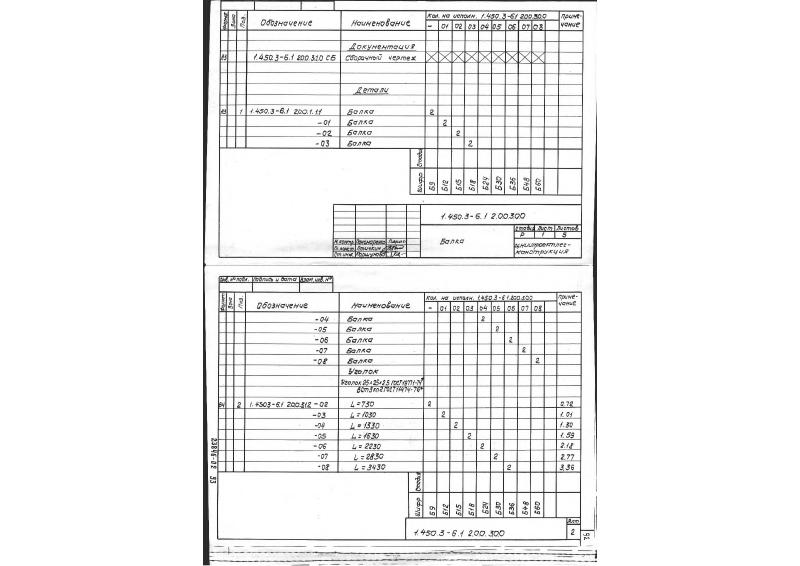 Формат Зона Поз. Обозначение Наименование Кол. на исполн. 1.450.3-6.1 200.300 Приме-
чание
- 01 02 03 04 05 06 07 08
Документация
А3 1.450.3-6.1 200.300 СБ Сборочный чертеж
Детали
А3 1 1.450.3-6.1 200.1.11 Балка 2
-01 Балка 2
-02 Балка 2
-03 Балка 2
Шифр Стадия Б9 Б12 Б15 Б18 Б24 Б30 Б36 Б48 Б60
1.450.3-6.1 2.00.300
Балка
Стадия Лист Листов
Р 1 5
Н.контр. Пономарева
конструкция
Инв. № подл. Подпись и дата Взам. инв. №
Формат Зона Поз. Обозначение Наименование Кол. на исполн. 1.450.3-6.1 200.300 Приме-
чание
- 01 02 03 04 05 06 07 08
-04 Балка 2
-05 Балка 2
-06 Балка 2
-07 Балка 2
-08 Балка 2
Уголок
Уголок 25×25×2,5 ГОСТ
2 1.450.3-6.1 200.312-02 L=730 2 0.72
-03 L=1030 2 1.01
-04 L=1330 2 1.30
-05 L=1630 2 1.59
-06 L=2230 2 2.18
-07 L=2830 2 2.77
-08 L=3430 2 3.36
Шифр Стадия Б9 Б12 Б15 Б18 Б24 Б30 Б36 Б48 Б60
1.450.3-6.1 2.00.300
Лист
2
23846-02 93